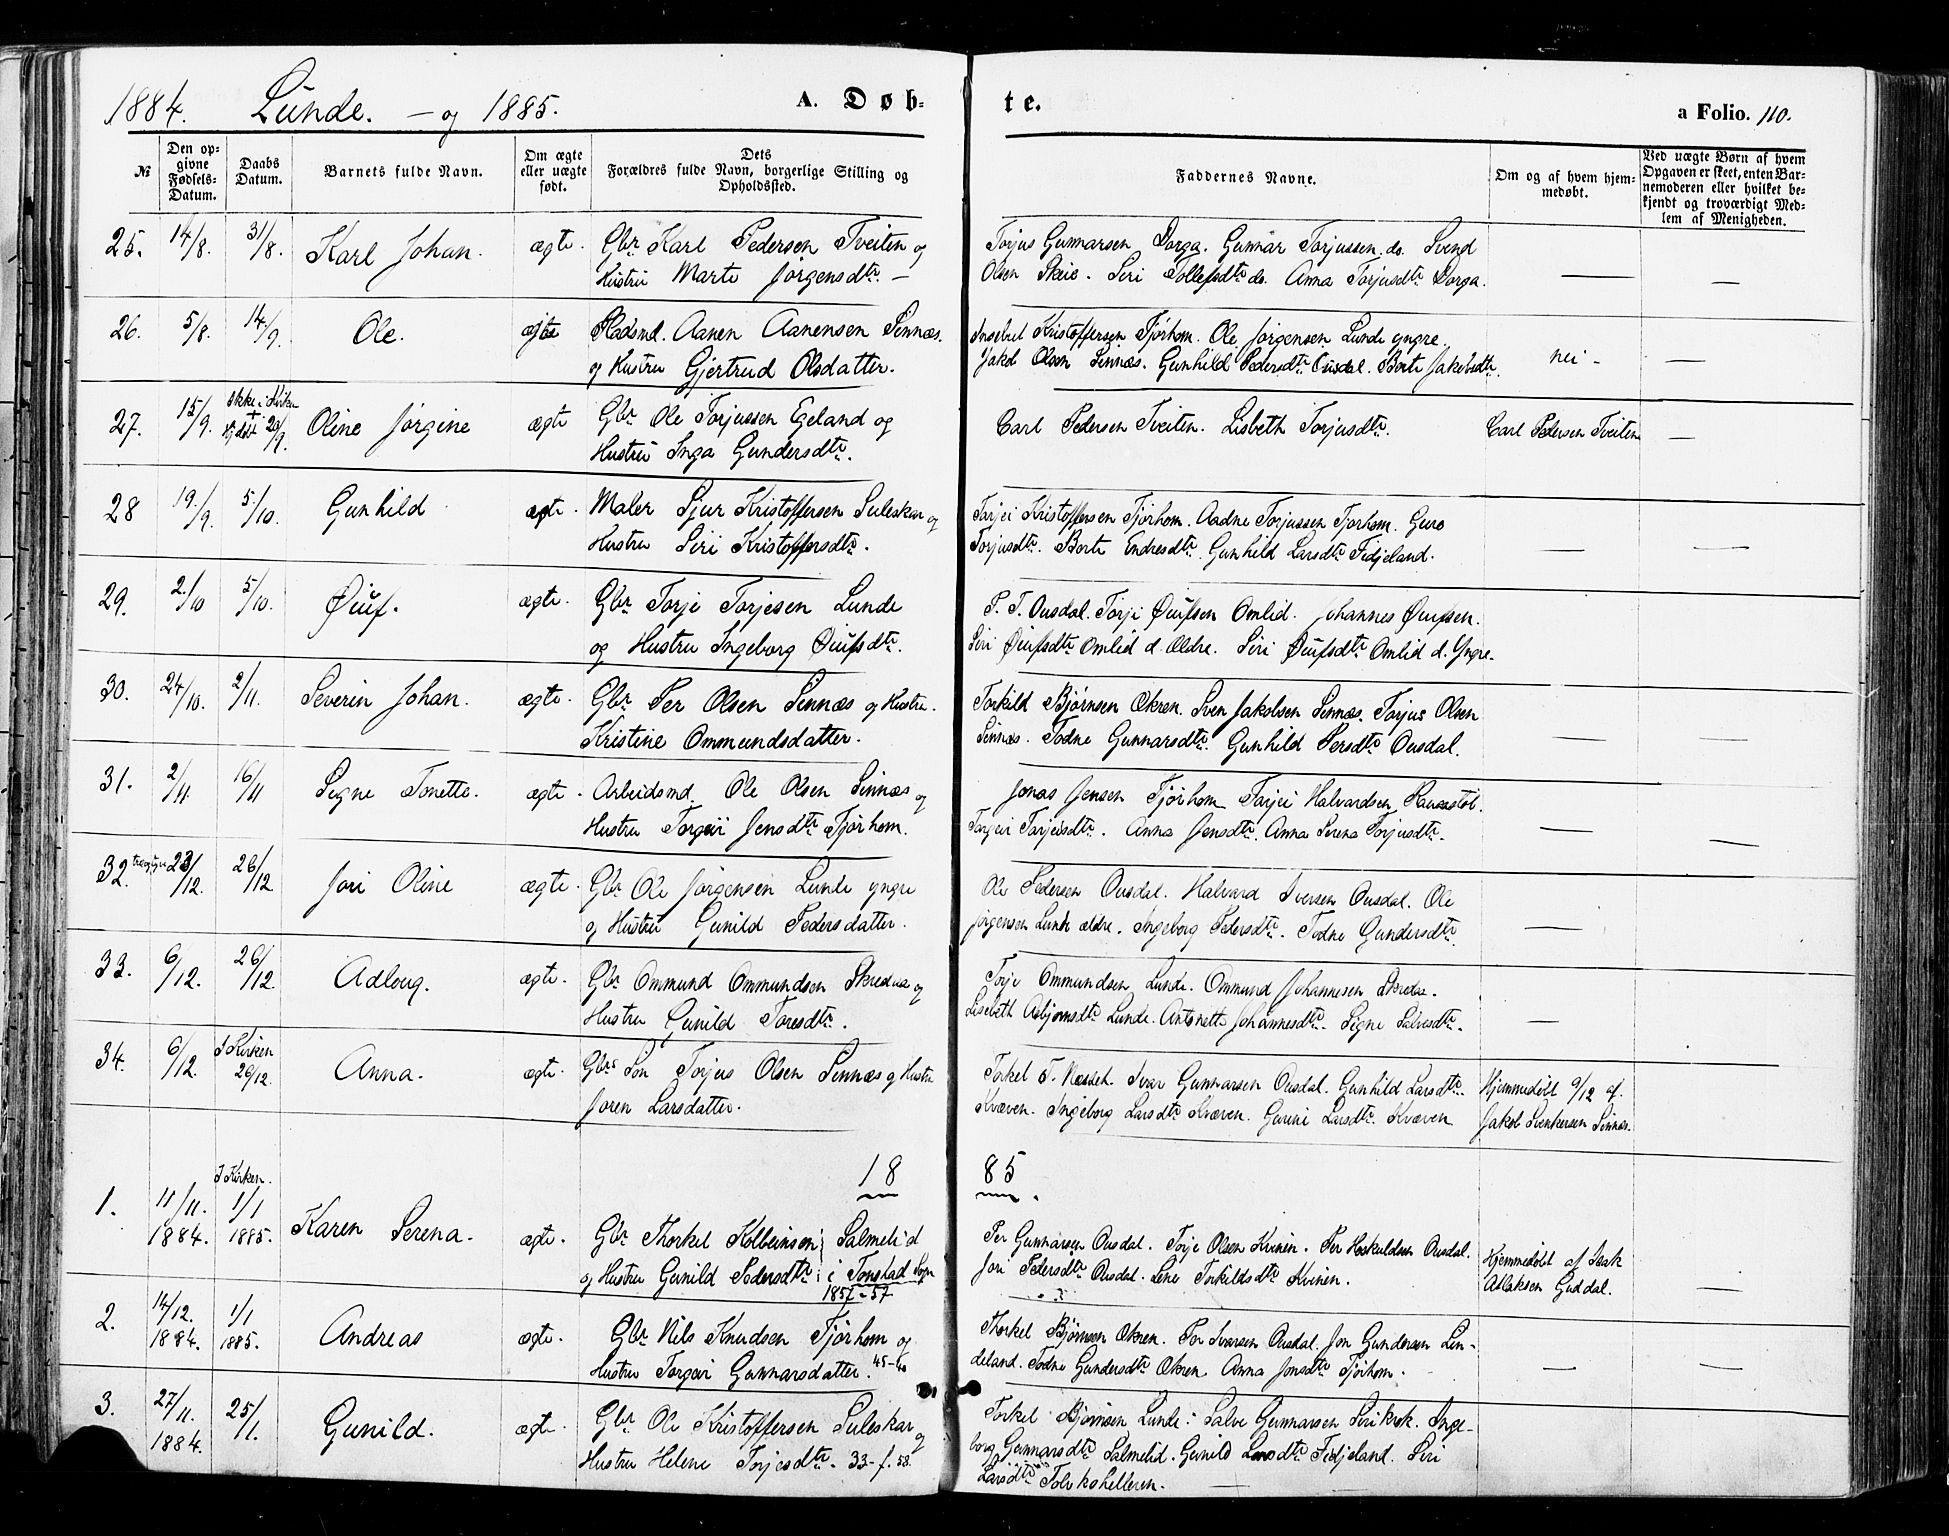 1884. Lunde. – og 1885. A. Døb- te. a Folio. 110.
№ Den op-givne Fødsels-Datum. Daabs Datum. Barnets fulde Navn. Om ægte eller uægte født. Dets Forældres fulde Navn, borgerlige Stilling og Opholdssted. Faddernes Navne. Om og af hvem hjem-medøbt. Ved uægte Børn af hvem Opgaven er skeet, enten Bar-nemoderen eller hvilket be-kjendt og troværdigt Med-lem af Menigheden.
25. 14/8. 31/8. Karl Johan. ægte. Gbr. Karl Pedersen Tveiten og Torjus Gunnarsen Dorga. Gunnar Torjussen ds. Svend
Hustru Marte Jørgensdtr. – Olsen Skeie. Siri Tollefsdtr ds. Anna Torjusdtr Dorga. — —
26. 5/8. 14/9. Ole. ægte Pladsmd. Aanen Aanensen Sinnæs. Ingebret Kristoffersen Tjørhom. Ole Jørgensen Lunde yngre.
og Hustru Gjertrud Olsdatter. Jakob Olsen Sinnæs. Gunhild Pedersdtr Ousdal. Berte Jakobsdtr. nei – —
27. 15/9. Ikke i Kirken + Hjdøbt 20/9. Oline Jørgine ægte Gbr. Ole Torjussen Egeland og Carl Pedersen Tveiten. Lisbeth Torjusdtr. Carl Pedersen Tveiten —
Hustru Inga Gundersdtr.
28 19/9. 5/10. Gunhild ægte. Maler Sjur Kristoffersen Suleskar og Tarjei Kristoffersen Tjørhom. Aadne Torjussen Tjorhom. Guro
Hustru Siri Kristoffersdtr. Torjusdtr. Berte Endresdtr. Gunhild Larsdtr Fidjeland. — —
29. 2/10 5/10. Øiuf. ægte. Gbr Torje Torjesen Lunde P. T. Ousdal. Torje Øiufsen Omlid. Johannes Øiufsen.
og Hustru Ingeborg Øiufsdtr. Siri Øiufsdtr Omlid d. Ældre. Siri Øiufsdtr Omlid d. Yngre.
30. 24/10. 2/11. Severin Johan. ægte. Gbr. Per Olsen Sinnæs og Hustru. Torkild Bjørnsen Økren. Sven Jakobsen Sinnæs. Torjus Olsen
Kristine Ommundsdatter. Sinnæs. Todne Gunnarsdtr. Gunhild Persdtr Ousdal. — —
31. 2/11. 16/11 Signe Tonette. ægte. Arbeidsmd. Ole Olsen Sinnæs og Jonas Jensen Tjørhom Tarjei Halvardsen
Hustru Torgeir Jensdtr Tjørhom. Tarjeir Tarjeisdtr. Anna Jensdtr. Anna Serena Torjusdtr. — —
32. 23/12. 26/12 Jori Oline ægte. Gbr Ole Jørgensen Lunde yngre Ole Pedersen Ousdal. Halvard Iversen Ousdal. Ole
og Hustru Gunild Pedersdatter. Jørgensen Lunde ældre. Ingeborg Pedersdtr. Todne Gundersdtr. —
33. 6/12. 26/12. Adloug. ægte. Gbr Ommund Ommundsen Skredaa og Torje Ommundsen Lunde. Ommund Johannesen Skredaa.
Hustru Gunild Toresdtr. Lisebeth Asbjørnsdtr Lunde. Antonette Johannesdtr. Signe Salvesdtr. —
34. 6/12. I Kirken 26/12. Anna. ægte. Gbrs Søn Torjus Olsen Sinnæs og Hustru Torkel T. Næsset. Ivar Gunnarsen Ousdal. Gunhild Larsdtr Hjemmedøbt 9/12 af.
Joren Larsdatter. Kvæven. Ingeborg Larsdtr Kvæven. Gurine Larsdtr. Kvæven Jakob Svenkersen Sinnæs.
18 85
1. 11/11. 1884. I Kirken. 1/1 1885. Karen Serena. ægte. Gbr Thorkel Kolbeinsen Salmelid Per Gunnarsen Ousdal. Torje Olsen Kvinen. Per Hoskuldsen Ousdal. Hjemmedøbt af Isak
og Hustru Gunild Pedersdtr i Tonstad Sogn Jori Pedersdtr Ousdal. Lene Torkildsdtr Kvinen. Aslaksen Guddal. —
1857 – 57
2. 14/12. 1884. 1/1 1885. Andreas ægte. Gbr Nils Knudsen Tjørhom og Thorkel Bjørnsen Økren. Per Iversen Ousdal. Jon Gundersen Lin-
Hustru Torgeir Gunnarsdatter. 45–40 deland. Todne Gundersdtr Økren. Anna Jonsdtr Tjørhom. — —
3. 27/11. 1884. 25/1. Gunild. ægte. Gbr Ole Kristoffersen Suleskar og Torkel Bjørnsen Lunde. Salve Gunnarsen Sirikrok. Inge-
Hustru Helene Torjesdtr. 33–f. 58. borg Gunnarsdtr Salmelid. Gunild Larsdtr Fidjeland. Siri
Larsdtr Tolvkshelleren. —